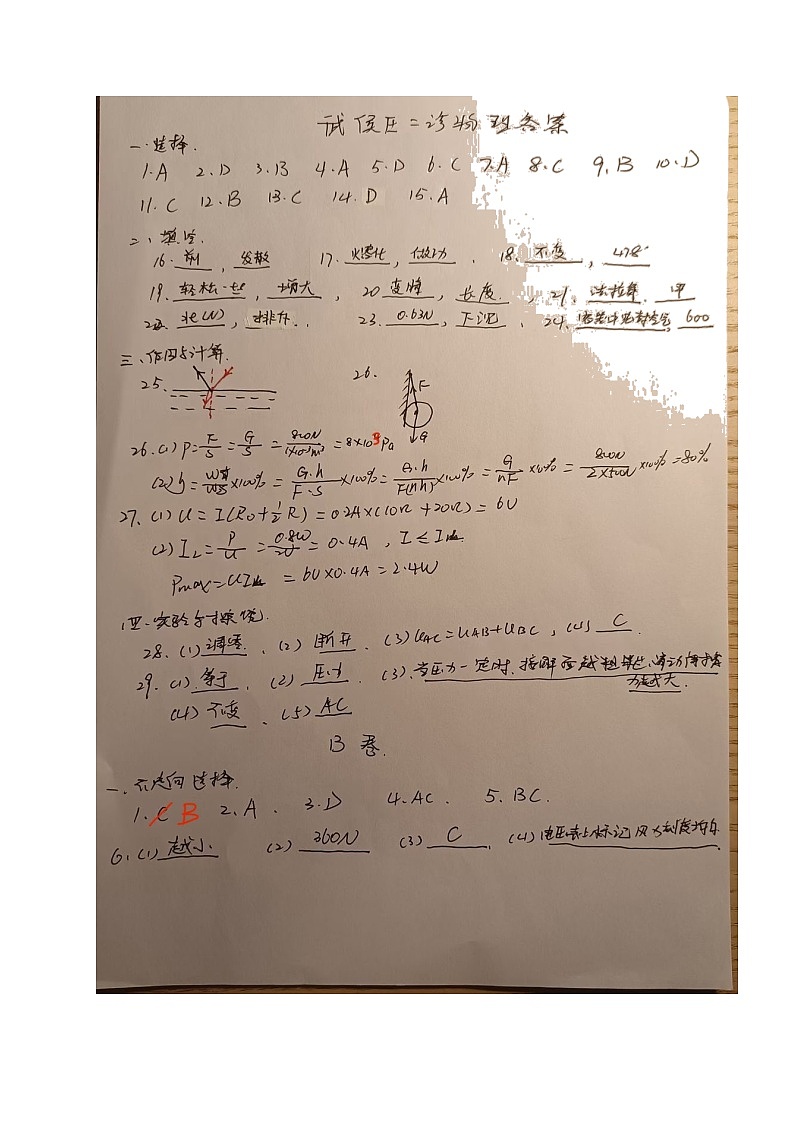 武侯区二诊物理答案
一.选择.
1.A 2.D 3.B 4.A 5.D 6.C 7.A 8.C 9.B 10.D
11.C 12.B 13.C 14.D 15.A
二、填空.
16. 发散 17. 熔化, 做功. 18. 不变,
19. 增大, 20 变暗, 长度. , 21. 法拉第. 甲
22. 北(N), 排斥. 23. 0.63N, 下沉. 24. 600
三、作图与计算.
25. 26. F G
26.(1) P=F/S=G/S=800N/(1×10⁻²m²)=8×10Pa
×100%=G·h/F·S×100%=G·h/F(nh)×100%=G/nF×100%=800N/2×500N×100%=80%
27.(1) U=I(R₀+½R)=0.2A×(10Ω+20Ω)=6V
=0.4A
=6V×0.4A=2.4W
四.实验与探究.
28.(1)调零. (2)断开. (3)U_AC=U_AB+U_BC, (4) C.
29.(1)等于. (2)压力. (3).当压力一定时,接触面越粗糙,滑动摩擦
力越大.
(4)不变. (5)AC
B卷.
一.不定向选择.
1.C B 2.A. 3.D 4.AC. 5.BC.
6.(1)越小. (2)360N (3) C. (4)电压表上标记风力刻度